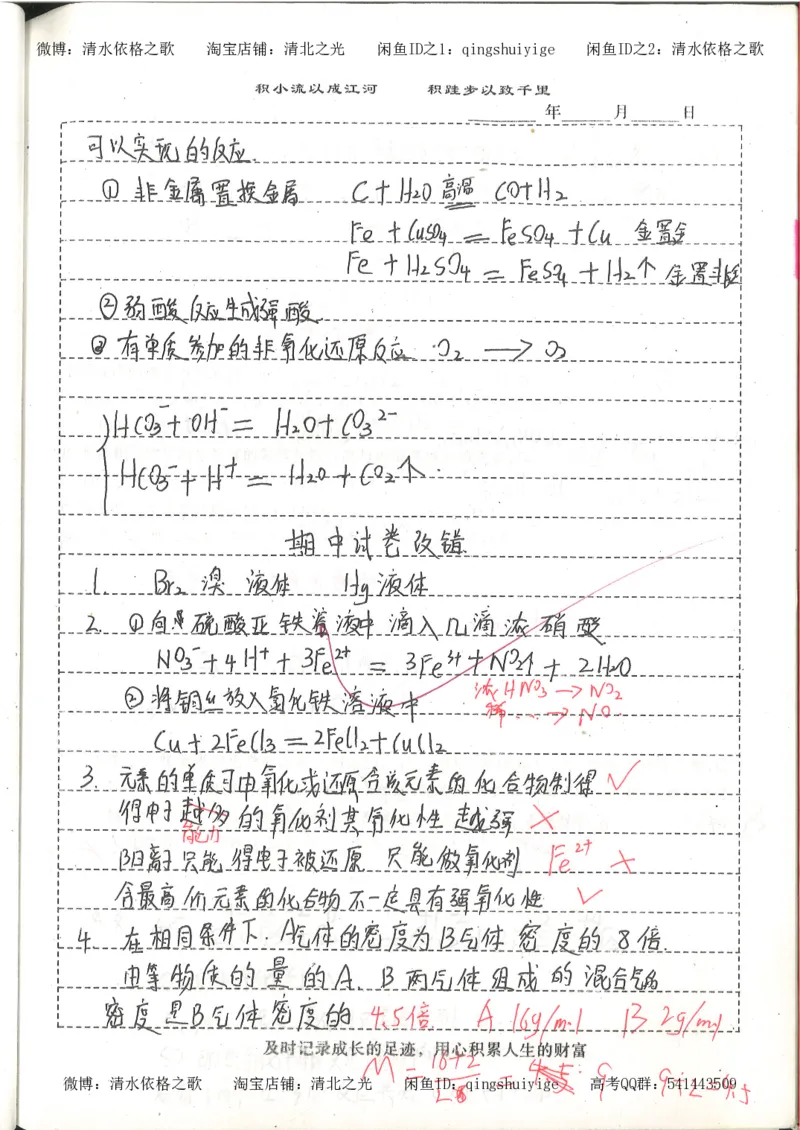 微博：清水依格之歌 淘宝店铺：清北之光 闲鱼ID之1：qingshuiyige 闲鱼ID之2：清水依格之歌
积小流以成江河 积跬步以致千里
年 月 日
可以实现的反应.
① 非金属置换金属 C+H2O 高温 CO+H2
Fe+CuSO4=FeSO4+Cu 金置金
Fe+H2SO4=FeSO4+H2↑ 金置非金
②弱酸反应生成强酸
③有单质参加的非氧化还原反应 O2 → O3
HCO3⁻+OH⁻=H2O+CO3²⁻
HCO3⁻+H⁺=H2O+CO2↑
期中试卷改错
1. Br2 溴 液体 Hg 液体
2. ①向 硫酸亚铁溶液中滴入几滴浓硝酸
NO3⁻+4H⁺+3Fe²⁺=3Fe³⁺+NO↑+2H2O
浓HNO3→NO2
②将铜丝放入氯化铁溶液中
稀...→NO.
Cu+2FeCl3=2FeCl2+CuCl2
3. 元素的单质可由氧化或还原含该元素的化合物制得 ✓
得电子越多的氧化剂其氧化性越强 ×
能力
阳离子只能得电子被还原 只能做氧化剂 Fe²⁺ ×
含最高价元素的化合物不一定具有强氧化性 ✓
4. 在相同条件下.A气体的密度为B气体密度的8倍.
由等物质的量的A.B两气体组成的混合气的
密度是B气体密度的 4.5倍 A 16g/mol B 2g/mol
及时记录成长的足迹，用心积累人生的财富
M = 16+2 = 9
微博：清水依格之歌 淘宝店铺：清北之光 闲鱼ID：qingshuiyige 高考QQ群：541443509